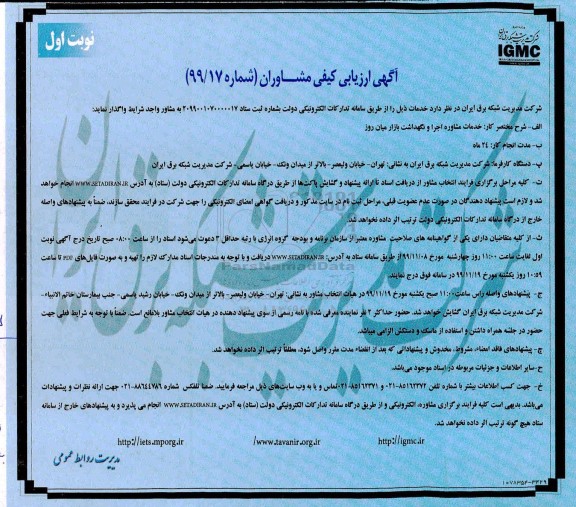 نوبت اول
IGMC
آگهی ارزیابی کیفی مشاوران (شماره ۹۹/۱۷)
شرکت مدیریت شبکه برق ایران در نظر دارد خدمات ذیل را از طریق سامانه تدارکات الکترونیکی دولت بشماره ثبت ستاد ۲۰۹۹۰۰۱۰۷۰۰۰۰۰۱۷ به مشاور واجد شرایط واگذار نماید:
الف - شرح مختصر کار: خدمات مشاوره اجرا و نگهداشت بازار میان روز
ب- مدت انجام کار: ۲۴ ماه
پ- دستگاه کارفرما: شرکت مدیریت شبکه برق ایران به نشانی: تهران- خیابان ولیعصر- بالاتر از میدان ونک- خیابان یاسمی- شرکت مدیریت شبکه برق ایران
ت- کلیه مراحل برگزاری فرایند انتخاب مشاور از دریافت اسناد تا ارائه پیشنهاد و گشایش پاکت‌ها از طریق درگاه سامانه تدارکات الکترونیکی دولت (ستاد) به آدرس WWW.SETADIRAN.IR انجام خواهد
شد و لازم است پیشنهاد دهندگان در صورت عدم عضویت قبلی، مراحل ثبت نام در سایت مذکور و دریافت گواهی امضای الکترونیکی را جهت شرکت در فرایند محقق سازند، ضمناً به پیشنهادهای واصله
خارج از درگاه سامانه تدارکات الکترونیکی دولت ترتیب اثر داده نخواهد شد.
ث- از کلیه متقاضیان دارای یکی از گواهینامه های صلاحیت مشاوره معتبر از سازمان برنامه و بودجه گروه انرژی با رتبه حداقل ۳ دعوت می‌شود اسناد را از ساعت ۰۸:۰۰ صبح تاریخ درج آگهی نوبت
اول لغایت ساعت ۱۱:۰۰ روز چهارشنبه مورخ ۹۹/۱۱/۰۸ از طریق سامانه ستاد به آدرس: WWW.SETADIRAN.IR دریافت و با توجه به مندرجات اسناد مدارک لازم را تهیه و به صورت فایل‌های PDF تا ساعت
۱۰:۵۹ روز یکشنبه مورخ ۹۹/۱۱/۱۹ در سامانه فوق درج نمایند.
ج- پیشنهادهای واصله راس ساعت ۱۱:۰۰ صبح یکشنبه مورخ ۹۹/۱۱/۱۹ در هیات انتخاب مشاور به نشانی: تهران- خیابان ولیعصر- بالاتر از میدان ونک- خیابان رشید یاسمی- جنب بیمارستان خاتم الانبیاء-
شرکت مدیریت شبکه برق ایران گشایش خواهد شد. حضور حداکثر ۲ نفر نماینده معرفی شده با نامه رسمی از سوی پیشنهاد دهنده در هیات انتخاب مشاور بلامانع است. ضمناً با توجه به شرایط فعلی جهت
حضور در جلسه همراه داشتن و استفاده از ماسک و دستکش الزامی میباشد.
چ- پیشنهادهای فاقد امضاء، مشروط، مخدوش و پیشنهاداتی که بعد از انقضاء مدت مقرر واصل شود، مطلقاً ترتیب اثر داده نخواهد شد.
ح- سایر اطلاعات و جزئیات مربوطه در اسناد موجود می‌باشد.
خ- جهت کسب اطلاعات بیشتر با شماره تلفن ۸۵۱۶۲۳۷۲-۰۲۱ و ۸۵۱۶۲۳۷۱-۰۲۱ تماس و یا به وب سایت‌های ذیل مراجعه فرمایید. ضمناً تلفکس شماره ۸۸۶۴۴۷۸۶-۰۲۱ جهت ارائه نظرات و پیشنهادات
می‌باشد. بدیهی است کلیه فرایند برگزاری مشاوره، الکترونیکی و از طریق درگاه سامانه تدارکات الکترونیکی دولت (ستاد) به آدرس WWW.SETADIRAN.IR انجام می پذیرد و به پیشنهادهای خارج از سامانه
ستاد هیچ گونه ترتیب اثر داده نخواهد شد.
http://igmc.ir www.tavanir.org.ir/ http://iets.mporg.ir
مدیریت روابط عمومی
ParsNamadData